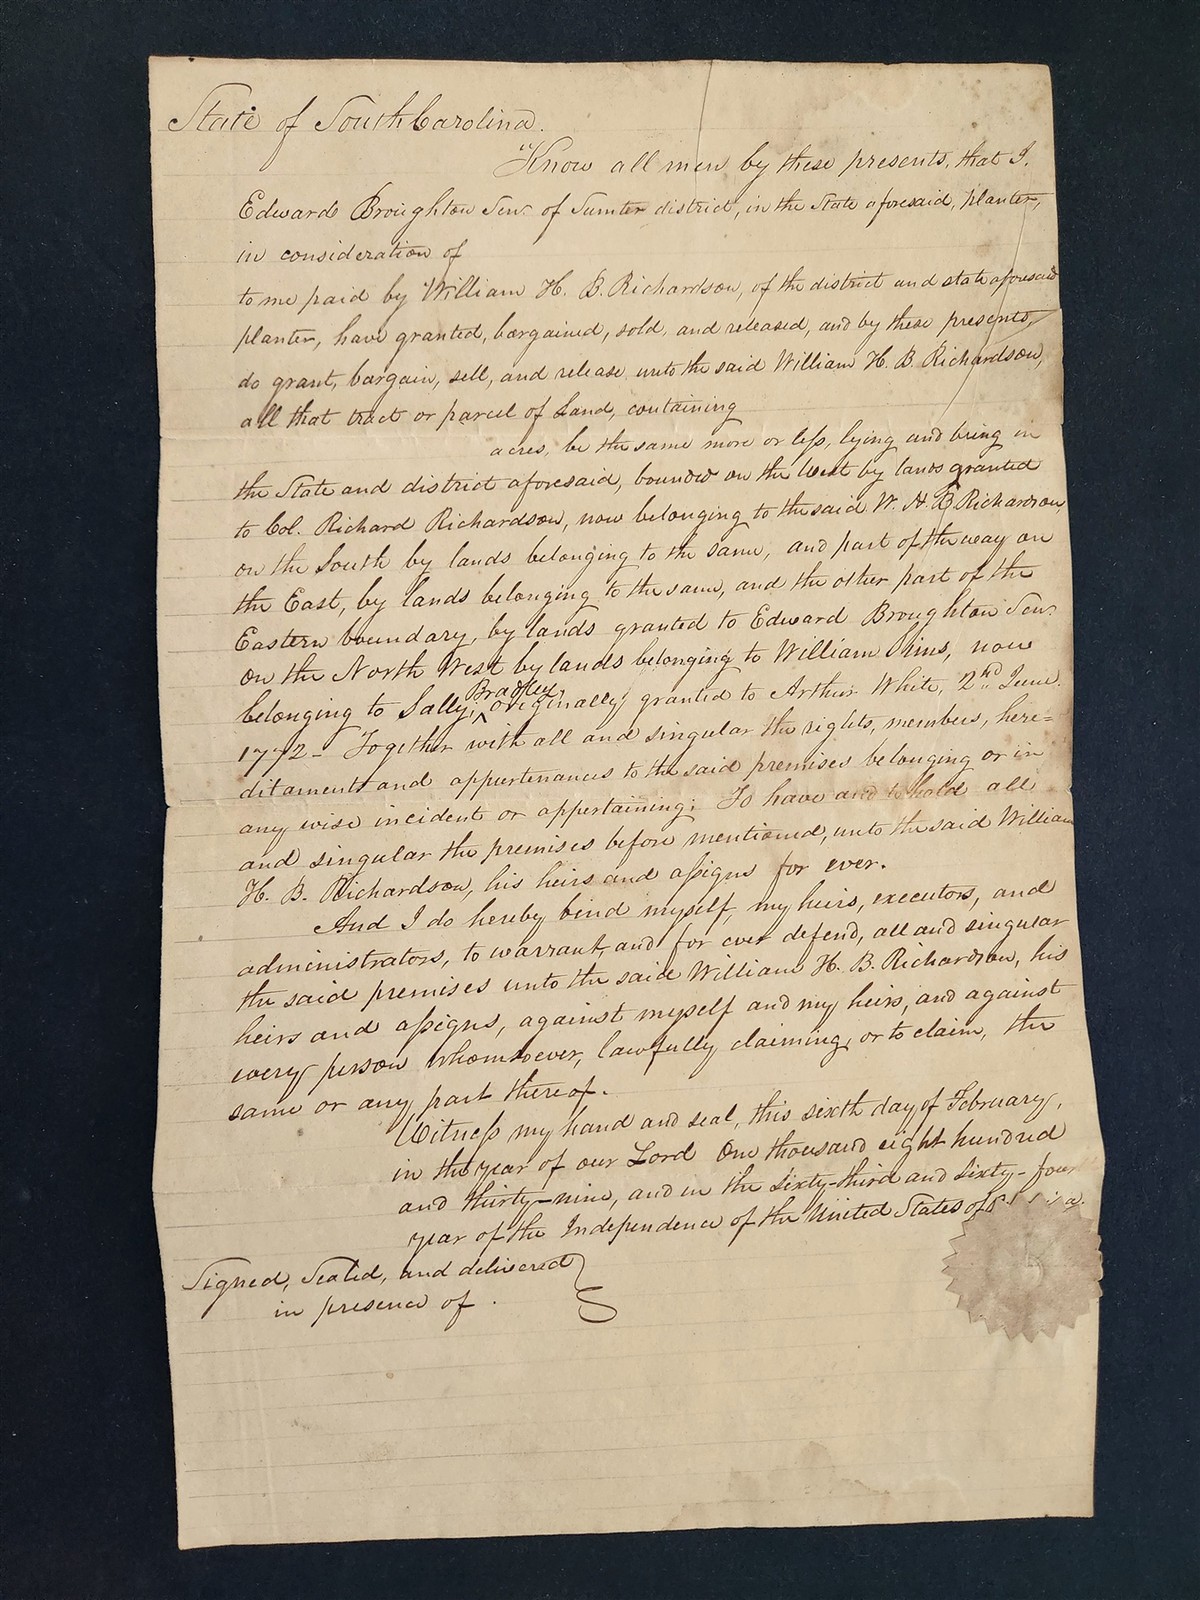 State of South Carolina.
Know all men by these presents, that I.
Edward Broughton Senr. of Sumter district, in the State aforesaid, planter,
in consideration of
to me paid by William H. B. Richardson, of the district and state aforesaid
planter, have granted, bargained, sold, and released, and by these presents,
do grant, bargain, sell, and release unto the said William H. B. Richardson,
all that tract or parcel of Land, containing
acres, be the same more or less, lying and being in
the State and district aforesaid, bounded on the West by lands granted
to Col. Richard Richardson, now belonging to the said W. H. B. Richardson,
on the South by lands belonging to the same, and part of the way on
the East, by lands belonging to the same, and the other part of the
Eastern boundary, by lands granted to Edward Broughton Senr.
on the North West by lands belonging to William now
Bradley,
belonging to Sally, originally granted to Arthur White, 2nd June.
1772 - Together with all and singular the rights, members, here=
ditaments and appurtenances to the said premises belonging or in
any wise incident or appertaining; To have and to hold all
and singular the premises before mentioned, unto the said William
H. B. Richardson, his heirs and assigns for ever.
And I do hereby bind myself, my heirs, executors, and
administrators, to warrant, and for ever defend, all and singular
the said premises unto the said William H. B. Richardson, his
heirs and assigns, against myself and my heirs, and against
every person whomsoever, lawfully claiming, or to claim, the
same or any part thereof.
Witness my hand and seal, this sixth day of February,
in the year of our Lord One thousand eight hundred
and thirty-nine, and in the sixty-third and sixty-four
year of the Independence of the United States of
Signed, Sealed, and delivered
in presence of .